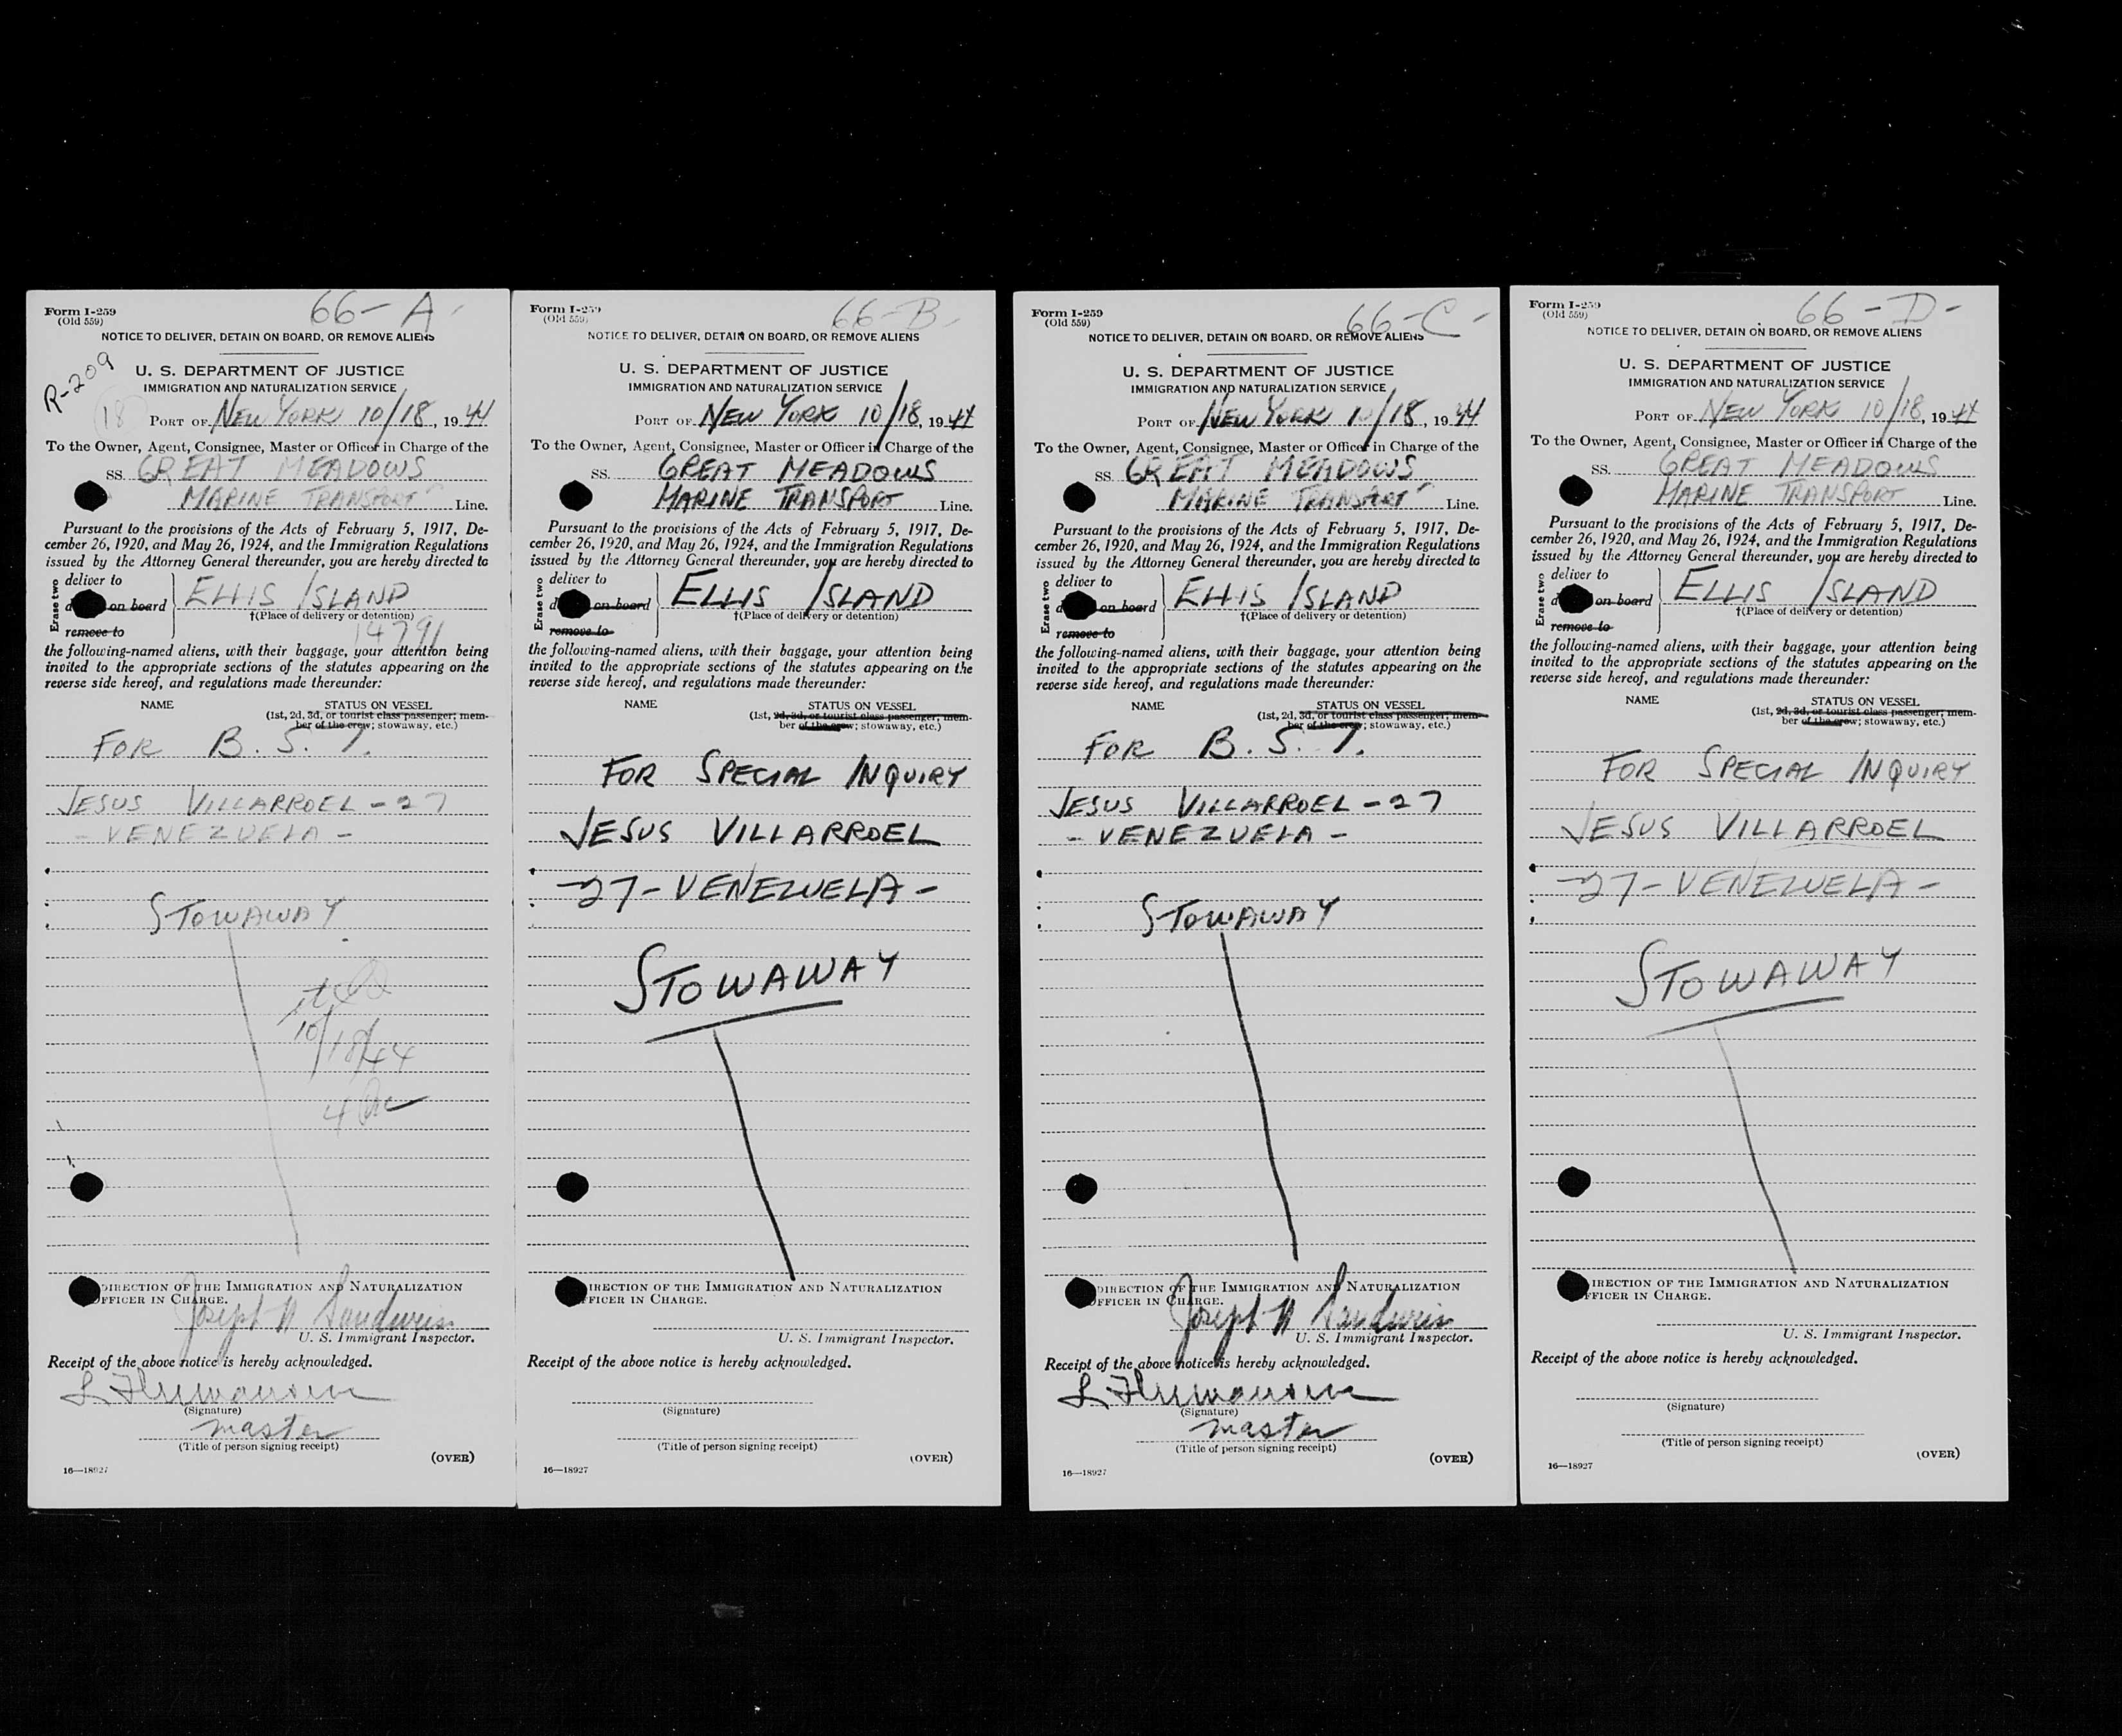 66-A-
Form I-259
(Old 559)
NOTICE TO DELIVER, DETAIN ON BOARD, OR REMOVE ALIENS
R-209
U. S. DEPARTMENT OF JUSTICE
IMMIGRATION AND NATURALIZATION SERVICE
18
PORT OF NEW YORK 10/18, 1944
To the Owner, Agent, Consignee, Master or Officer in Charge of the
SS. GREAT MEADOWS
MARINE TRANSPORT Line.
Pursuant to the provisions of the Acts of February 5, 1917, De-
cember 26, 1920, and May 26, 1924, and the Immigration Regulations
issued by the Attorney General thereunder, you are hereby directed to
Erase two
deliver to
d on board ELLIS ISLAND
†(Place of delivery or detention)
remove to
14791
the following-named aliens, with their baggage, your attention being
invited to the appropriate sections of the statutes appearing on the
reverse side hereof, and regulations made thereunder:
NAME STATUS ON VESSEL
(1st, 2d, 3d, or tourist class passenger; mem-
ber of the crew; stowaway, etc.)
FOR B. S. I.
JESUS VILLARROEL - 27
- VENEZUELA -
STOWAWAY
10/18/44
DIRECTION OF THE IMMIGRATION AND NATURALIZATION
OFFICER IN CHARGE.
Joseph
U. S. Immigrant Inspector.
Receipt of the above notice is hereby acknowledged.
(Signature)
master
(Title of person signing receipt)
(OVER)
16—18927
66-B-
Form I-259
(Old 559)
NOTICE TO DELIVER, DETAIN ON BOARD, OR REMOVE ALIENS
U. S. DEPARTMENT OF JUSTICE
IMMIGRATION AND NATURALIZATION SERVICE
PORT OF NEW YORK 10/18, 1944
To the Owner, Agent, Consignee, Master or Officer in Charge of the
SS. GREAT MEADOWS
MARINE TRANSPORT Line.
Pursuant to the provisions of the Acts of February 5, 1917, De-
cember 26, 1920, and May 26, 1924, and the Immigration Regulations
issued by the Attorney General thereunder, you are hereby directed to
Erase two
deliver to
d on board ELLIS ISLAND
†(Place of delivery or detention)
remove to
the following-named aliens, with their baggage, your attention being
invited to the appropriate sections of the statutes appearing on the
reverse side hereof, and regulations made thereunder:
NAME STATUS ON VESSEL
(1st, 2d, 3d, or tourist class passenger; mem-
ber of the crew; stowaway, etc.)
FOR SPECIAL INQUIRY
JESUS VILLARROEL
-27- VENEZUELA -
STOWAWAY
IRECTION OF THE IMMIGRATION AND NATURALIZATION
FFICER IN CHARGE.
U. S. Immigrant Inspector.
Receipt of the above notice is hereby acknowledged.
(Signature)
(Title of person signing receipt)
(OVER)
16—18927
66-C-
Form I-259
(Old 559)
NOTICE TO DELIVER, DETAIN ON BOARD, OR REMOVE ALIENS
U. S. DEPARTMENT OF JUSTICE
IMMIGRATION AND NATURALIZATION SERVICE
PORT OF NEW YORK 10/18, 1944
To the Owner, Agent, Consignee, Master or Officer in Charge of the
SS. GREAT MEADOWS
MARINE TRANSPORT Line.
Pursuant to the provisions of the Acts of February 5, 1917, De-
cember 26, 1920, and May 26, 1924, and the Immigration Regulations
issued by the Attorney General thereunder, you are hereby directed to
Erase two
deliver to
d on board ELLIS ISLAND
†(Place of delivery or detention)
remove to
the following-named aliens, with their baggage, your attention being
invited to the appropriate sections of the statutes appearing on the
reverse side hereof, and regulations made thereunder:
NAME STATUS ON VESSEL
(1st, 2d, 3d, or tourist class passenger; mem-
ber of the crew; stowaway, etc.)
FOR B. S. I.
JESUS VILLARROEL - 27
- VENEZUELA -
STOWAWAY
DIRECTION OF THE IMMIGRATION AND NATURALIZATION
OFFICER IN CHARGE.
Joseph
U. S. Immigrant Inspector.
Receipt of the above notice is hereby acknowledged.
(Signature)
master
(Title of person signing receipt)
(OVER)
16—18927
66-D-
Form I-259
(Old 559)
NOTICE TO DELIVER, DETAIN ON BOARD, OR REMOVE ALIENS
U. S. DEPARTMENT OF JUSTICE
IMMIGRATION AND NATURALIZATION SERVICE
PORT OF NEW YORK 10/18, 1944
To the Owner, Agent, Consignee, Master or Officer in Charge of the
SS. GREAT MEADOWS
MARINE TRANSPORT Line.
Pursuant to the provisions of the Acts of February 5, 1917, De-
cember 26, 1920, and May 26, 1924, and the Immigration Regulations
issued by the Attorney General thereunder, you are hereby directed to
Erase two
deliver to
d on board ELLIS ISLAND
†(Place of delivery or detention)
remove to
the following-named aliens, with their baggage, your attention being
invited to the appropriate sections of the statutes appearing on the
reverse side hereof, and regulations made thereunder:
NAME STATUS ON VESSEL
(1st, 2d, 3d, or tourist class passenger; mem-
ber of the crew; stowaway, etc.)
FOR SPECIAL INQUIRY
JESUS VILLARROEL
-27- VENEZUELA -
STOWAWAY
IRECTION OF THE IMMIGRATION AND NATURALIZATION
FFICER IN CHARGE.
U. S. Immigrant Inspector.
Receipt of the above notice is hereby acknowledged.
(Signature)
(Title of person signing receipt)
(OVER)
16—18927